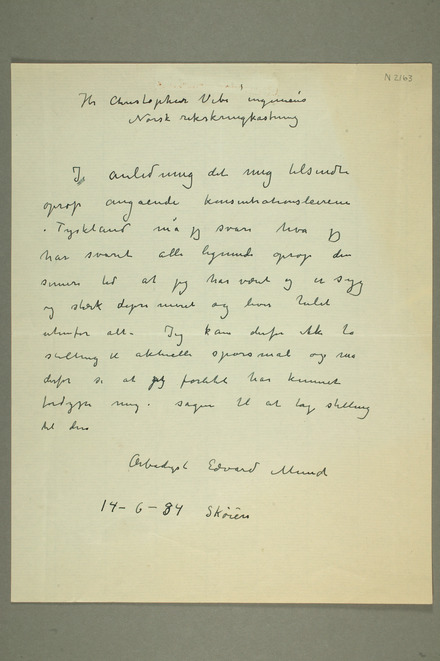 N 2163
Hr Christopher Vibe ingeniøs
Norsk rikskringkastning
I anledning det mig tilsendte
oprop angaaende konsentrationsleirene
i Tyskland må jeg svare hva jeg
har svaret alle lignende oprop den
senere tid at jeg har været og er syg
og stærk deprimeret og lever helt
utenfor alt. Jeg kan derfor ikke ta
stilling til aktuelle spørsmål og må
derfor se at jeg har kunnet
fordype mig i sagen til at tag stilling
til den
Arbødigst Edvard Munch
14-6-34 Skøien